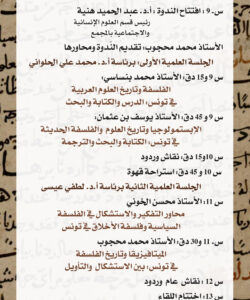 س - 9 : افتتاح الندوة : أ.د. عبد الحميد هنية
رئيس قسم العلوم الإنسانية
والاجتماعية بالمجمع
الأستاذ محمد محجوب: تقديم الندوة ومحاورها
الجلسة العلمية الأولى: برئاسة أ.د. محمد علي الحلواني
س 9 و15 دق: الأستاذ محمد بنساسي:
الفلسفة وتاريخ العلوم العربية
في تونس: الدرس والكتابة والبحث
س 9 و 45 دق: الأستاذ يوسف بن عثمان:
الإبستمولوجيا وتاريخ العلوم والفلسفة الحديثة
في تونس: الكتابة والبحث والترجمة
س 10و15 دق: نقاش وردود
س 10 و 45 دق: استراحة قهوة
الجلسة العلمية الثانية برئاسة أ.د. لطفي عيسى
س 11: الأستاذ محسن الخوني
محاور التفكير والاستشكال في الفلسفة
السياسية وفلسفة الأخلاق في تونس
س. 11 و30 دق: الأستاذ محمد محجوب
الميتافيزيقا وتاريخ الفلسفة
في تونس: بين الاستشكال والتأويل
س 12 : نقاش عام وردود
س 13: اختتام اللقاء